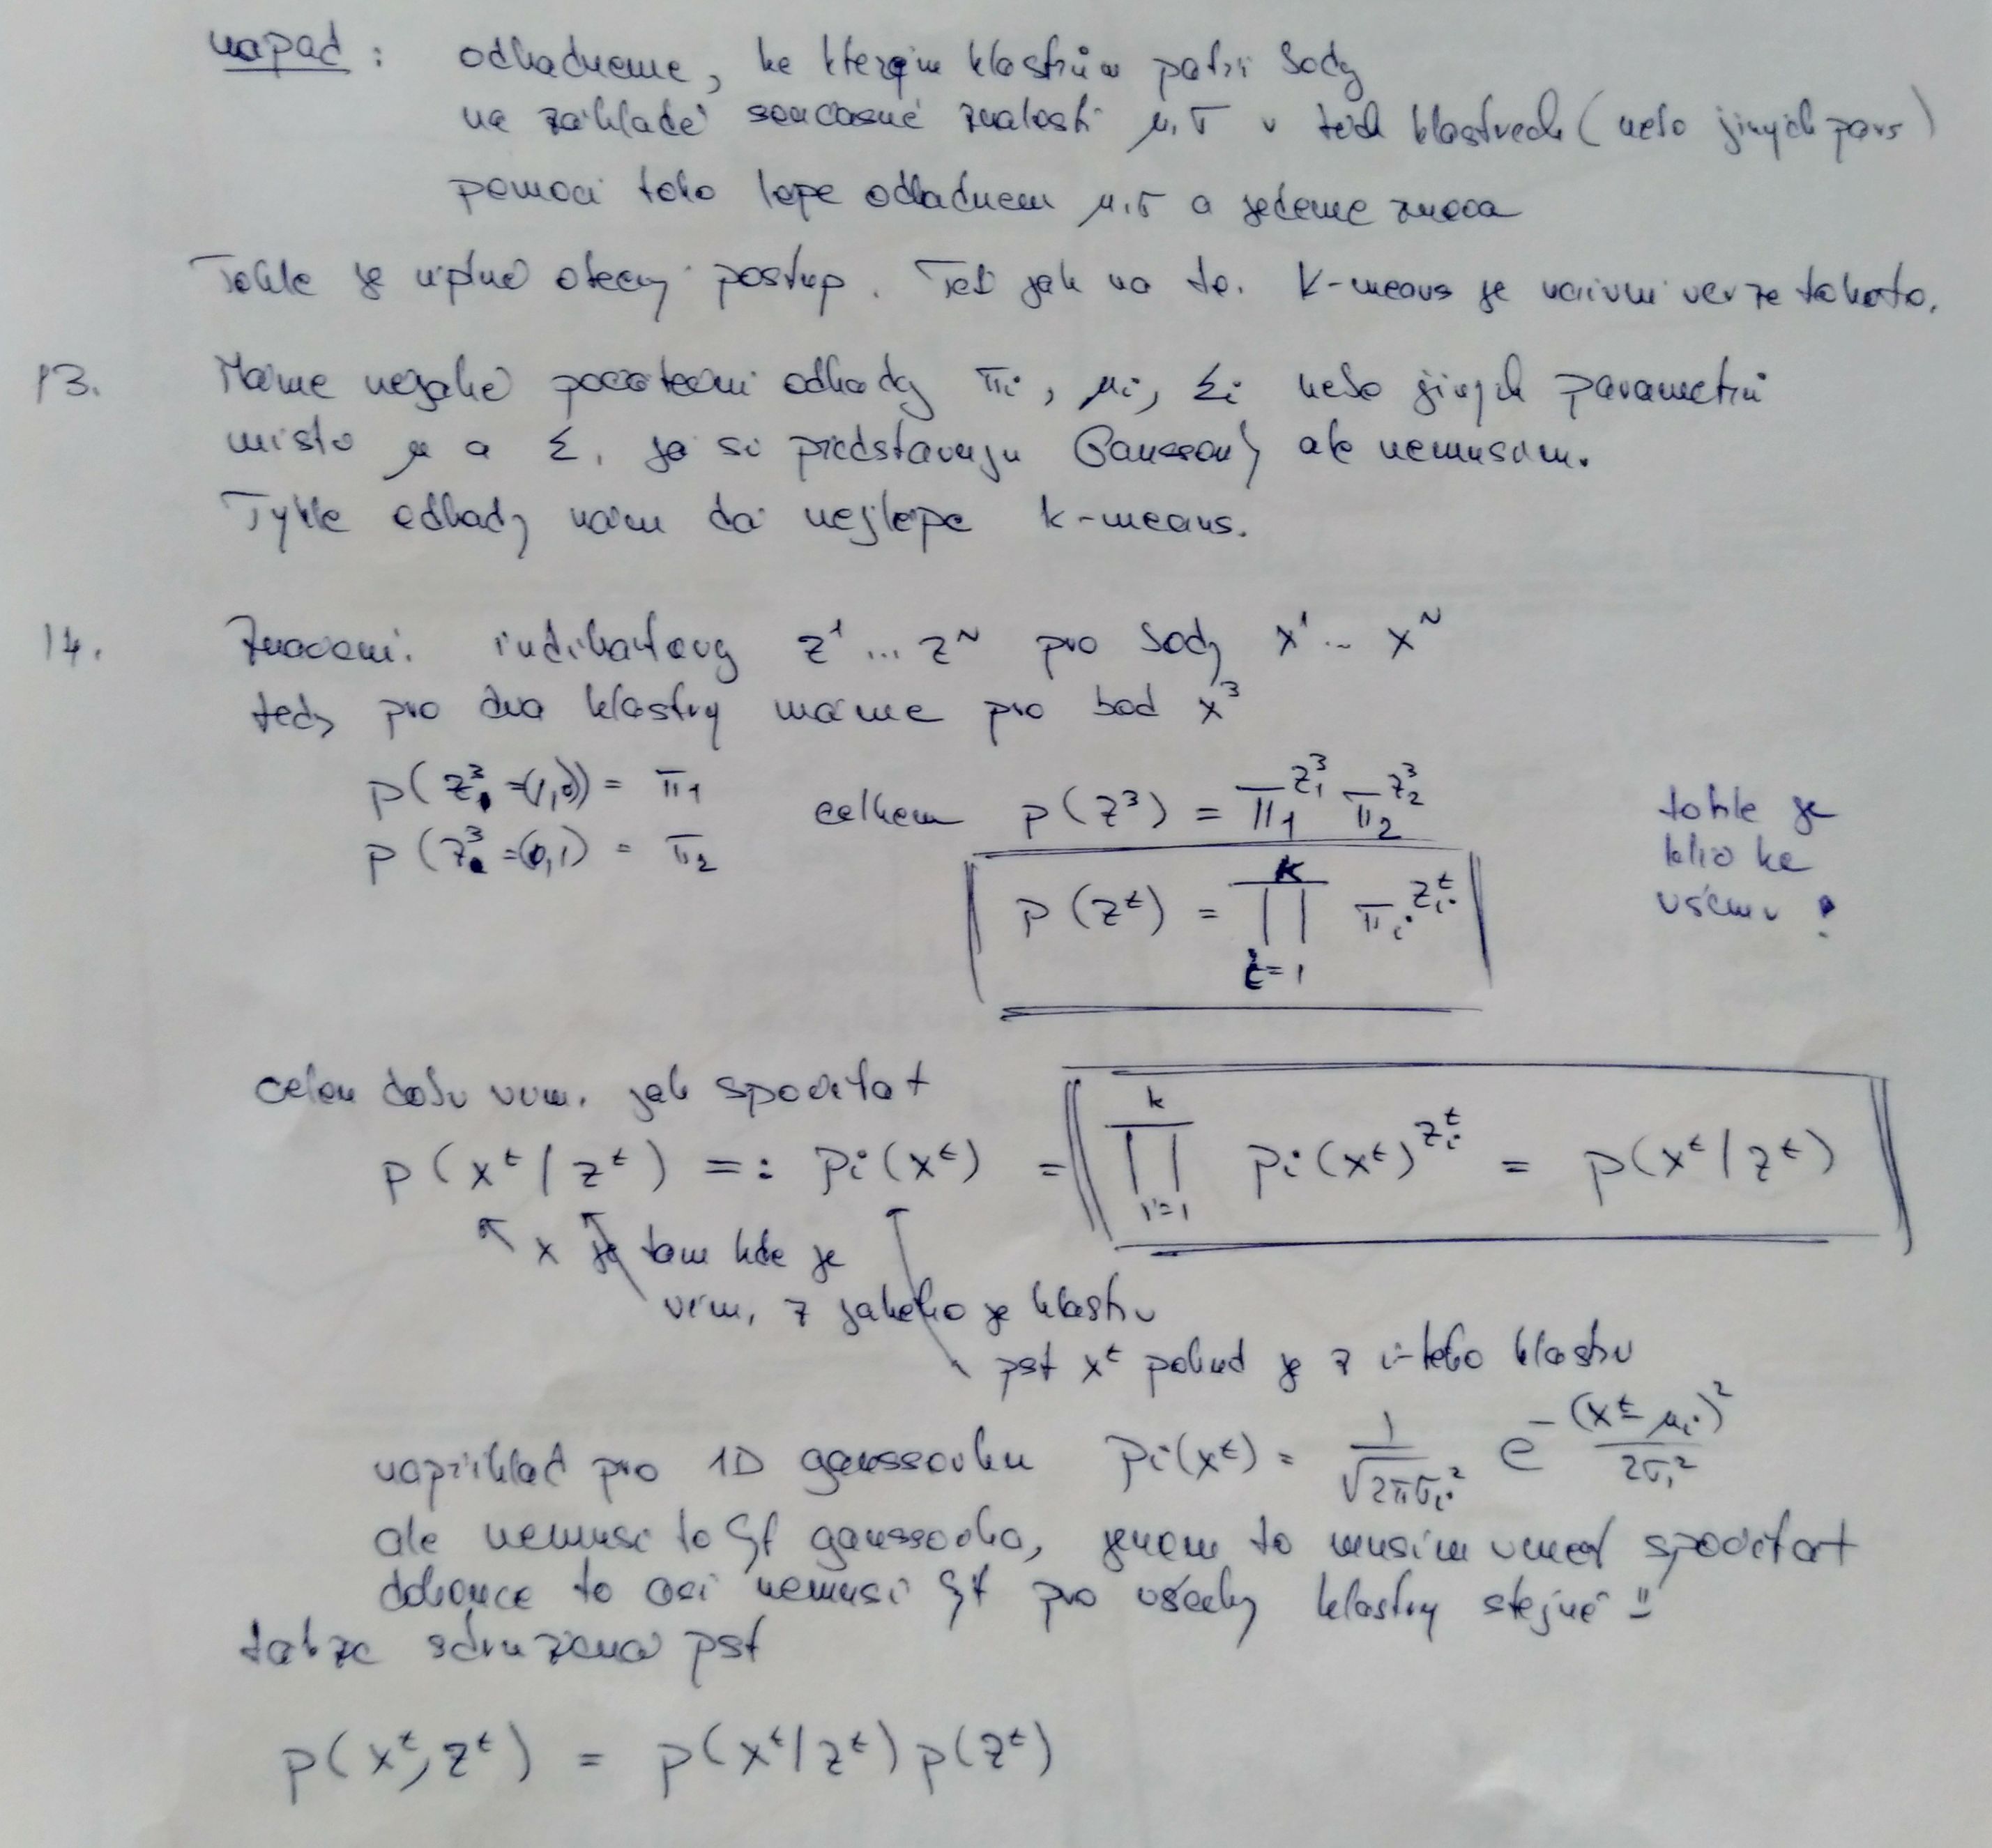 nápad : odhadneme, ke kterým klastrům patří body
na základě současné znalosti μ, σ v těch klastrech (nebo jiných par)
pomocí toho lépe odhadnem μ, σ a jedeme znova
Tohle je úplně obecný postup. Teď jak na to. K-means je naivní verze tohoto.
13. Máme nějaké počáteční odhady πi, μi, Σi nebo jiných parametrů
místo μ a Σ, já si představuju Gaussovky ale nemusím.
Tyhle odhady nám dá nejlépe k-means.
14. Značení: indikátory z¹ ... z^N pro body x¹ ... x^N
tedy pro dva klastry máme pro bod x³
p(z³ = (1,0)) = π₁
p(z³ = (0,1)) = π₂
celkem p(z³) = π₁^{z₁³} π₂^{z₂³}
p(z^t) = ∏_{i=1}^{k} π_i^{z_i^t}
tohle je
klíč ke
všemu !
celou dobu vím, jak spočítat
p(x^t | z^t) =: p_i(x^t) = ∏_{i=1}^{k} p_i(x^t)^{z_i^t} = p(x^t | z^t)
x je tam kde je
vím, z jakého je klastru
pst x^t pokud je z i-tého klastru
například pro 1D gaussovku p_i(x^t) = 1/√(2πσ_i²) e^{-(x^t - μ_i)²/2σ_i²}
ale nemusí to být gaussovka, jenom to musím umět spočítat
dokonce to asi nemusí být pro všechny klastry stejné
takže sdružená pst
p(x^t, z^t) = p(x^t | z^t) p(z^t)